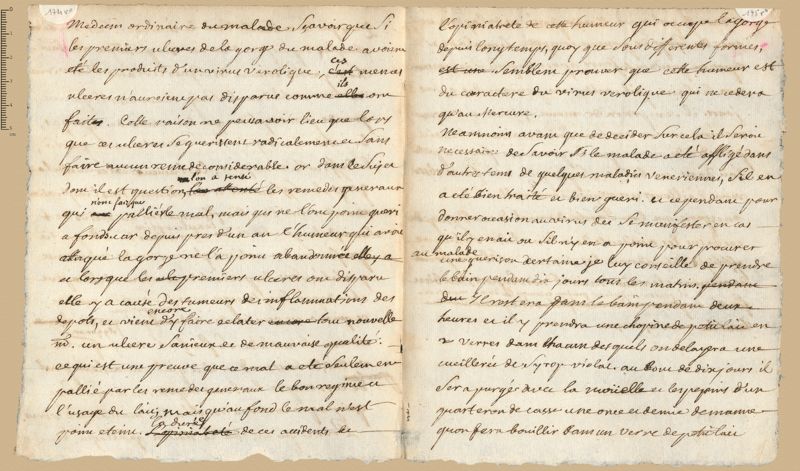 Medecin ordinaire du malade. Sçavoir que Si
les premiers ulceres de la gorge du malade avoient
eté les produits d'un virus verolique, ces memes
ulceres n'auroient pas disparus comme ils ont
faits. Cette raison ne peut avoir lieu que lors
que ces ulceres se guerissent radicalement et Sans
faire aucun remede considerable. or dans le Sujet
dont il est question, l'on a tenté les remedes generaux
qui n'ont fait que pallier le mal, mais qui ne l'ont point gueri
a fond. car depuis pres d'un an l'humeur qui avoit
attaqué la gorge ne l'a point abandonnée
et lorsque les premiers ulceres ont disparu
elle y a causé des tumeurs des inflammations des
depots, et vient d'y faire eclater encore tout nouvellem.
un ulcere Sanieux et de mauvaise qualité.
ce qui est une preuve que ce mal a eté Seulement
pallié par les remedes generaux le bon regime et
l'usage du lait, mais qu'au fond le mal n'est
point eteint. La durée de ces accidents et
l'opiniatreté de cette humeur qui occupe la gorge
depuis longtemps, quoy que Sous differentes formes,
est une Semblent prouver que cette humeur est
du caractere du virus verolique qui ne cedera
qu'au Mercure.
Neanmoins avant que de decider Sur cela il Seroit
necessaire de Savoir Si le malade a eté affligé dans
d'autres tems de quelques maladies veneriennes, S'il en
a eté bien traité et bien gueri. et cependant pour
donner occasion au virus de Se manifester en cas
qu'il y en ait ou S'il n'y en a point pour procurer
au malade
une guerison certaine je luy conseille de prendre
le bain pendant dix jours tous les matins. pendant
deux Il restera dans le bain pendant deux
heures et il y prendra une chopine de petit lait en
2 verres dans chacun desquels on delayera une
cueillerée de Syrop violat. au bout de dix jours il
Sera purgé avec la moüelle et les pepins d'un
quarteron de casse une once et demie de manne
qu'on fera bouillir dans un verre de petit lait